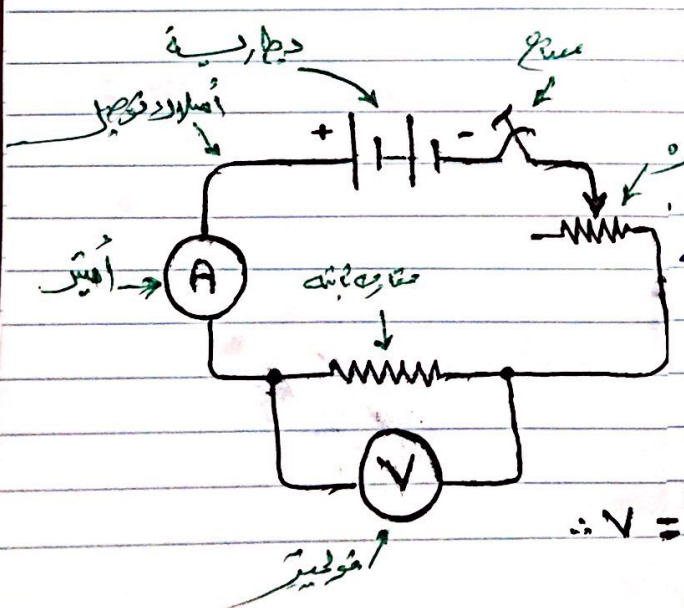 بطارية
مفتاح
أسلاك توصيل
+ -
أميتر
A
مقاومة ثابتة
V
∴ V =